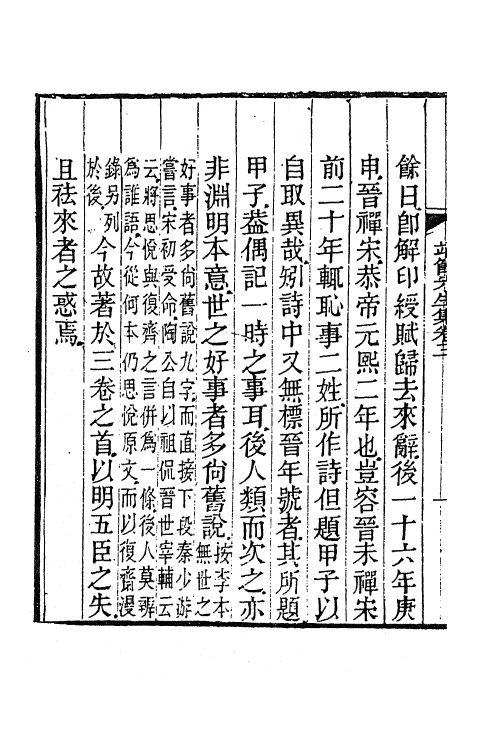 餘日卽解印綬賦歸去來辭後一十六年庚
申晉禪宋恭帝元熙二年也豈容晉未禪宋
前二十年輒恥事二姓所作詩但題甲子以
自取異哉矧詩中又無標晉年號者其所題
甲子葢偶記一時之事耳後人類而次之亦
非淵明本意世之好事者多尙舊說按李本無世之
好事者多尙舊說九字而直接下段秦少游
嘗言宋初受命陶公自以祖侃晉世宰輔云
云將思悅與復齋之言併爲一條後人莫辨
爲誰語今從何本仍思悅原文而以復齋漫
錄另列
於後今故著於三卷之首以明五臣之失
且祛來者之惑焉
靖節先生集卷三